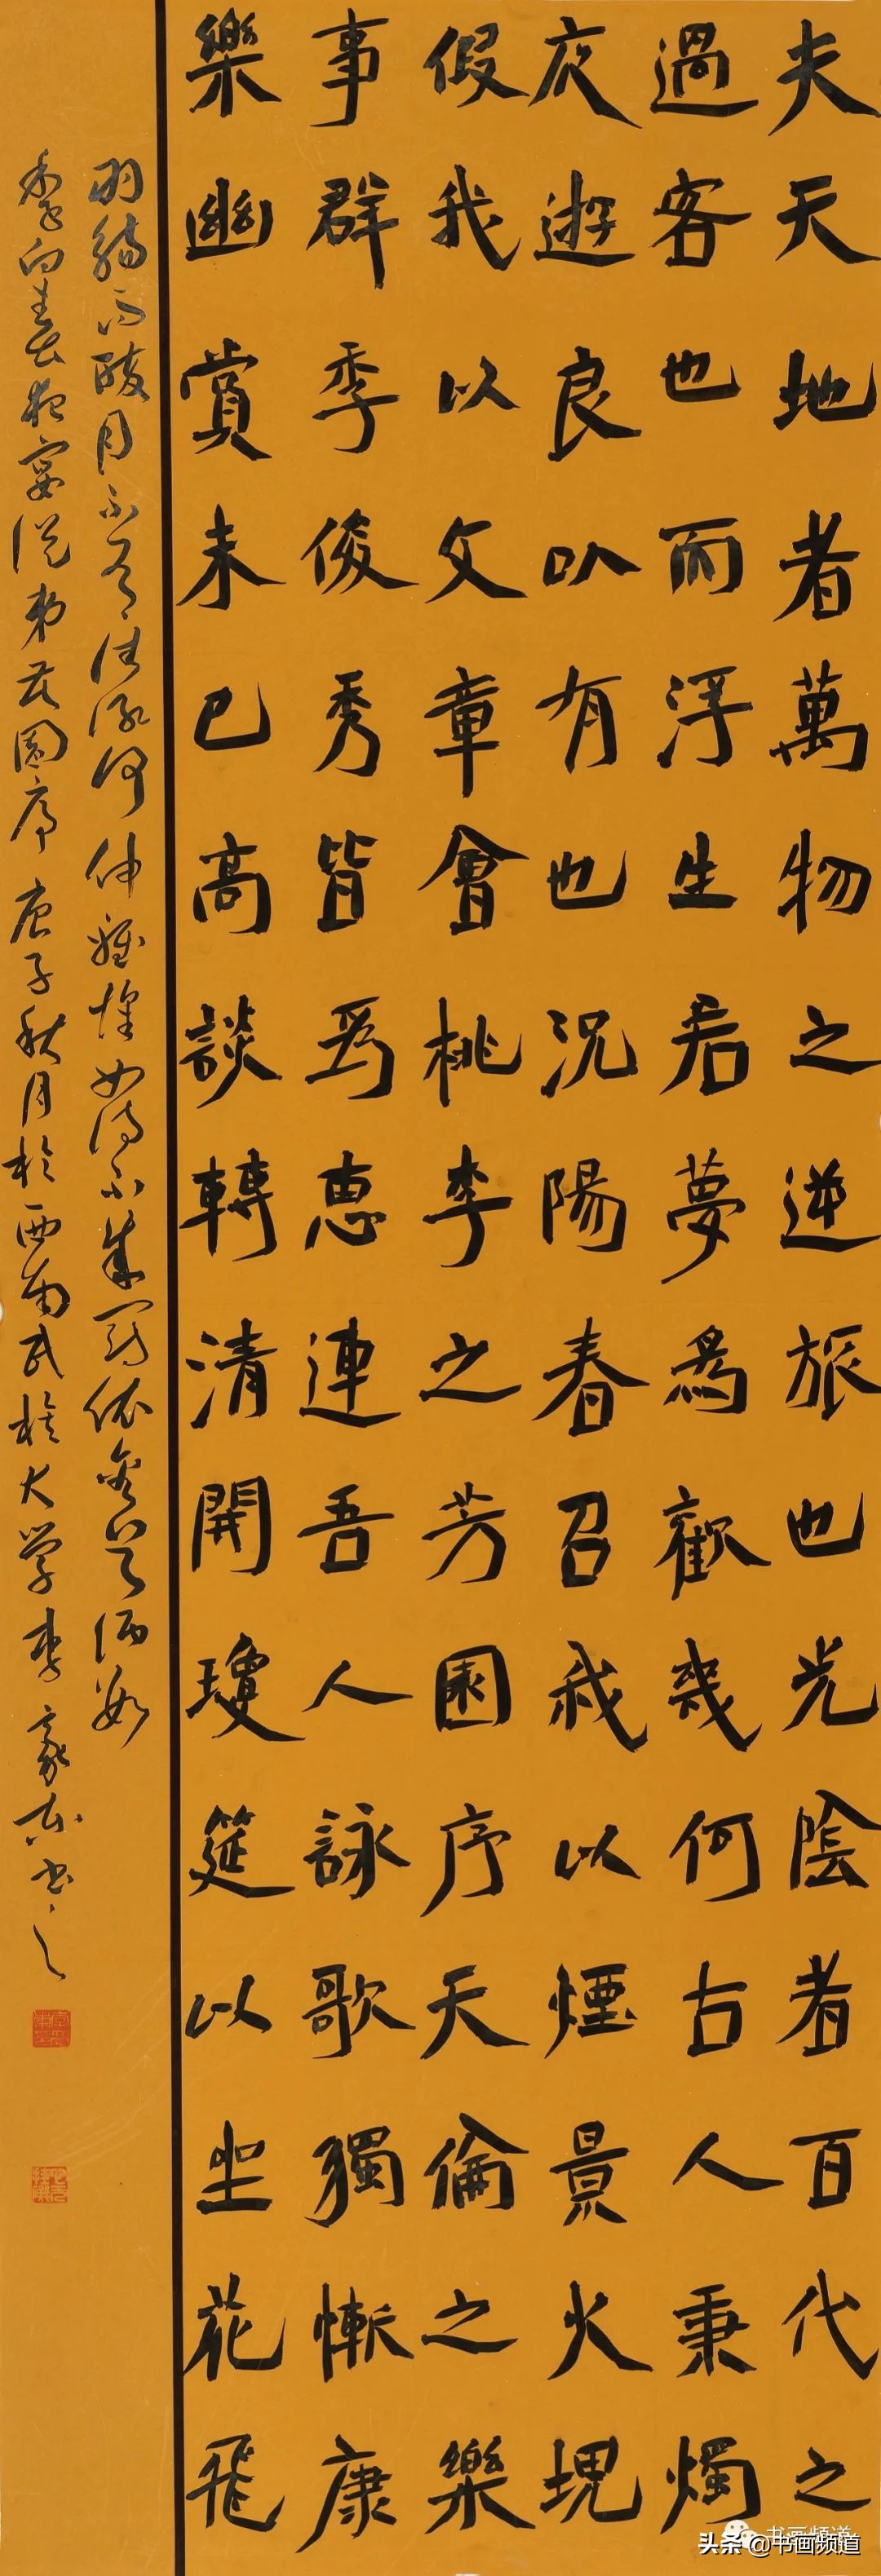 夫天地者萬物之逆旅也光陰者百代之
過客也而浮生若夢為歡幾何古人秉燭
夜遊良以有也況陽春召我以煙景大塊
假我以文章會桃李之芳園序天倫之樂
事群季俊秀皆為惠連吾人詠歌獨慚康
樂幽賞未已高談轉清開瓊筵以坐花飛
羽觴而醉月不有佳詠何伸雅懷如詩不成罰依金谷酒數
李白春夜宴從弟花園序庚子秋月於西南民族大学李豪东书之
头条 @书画频道
书画频道